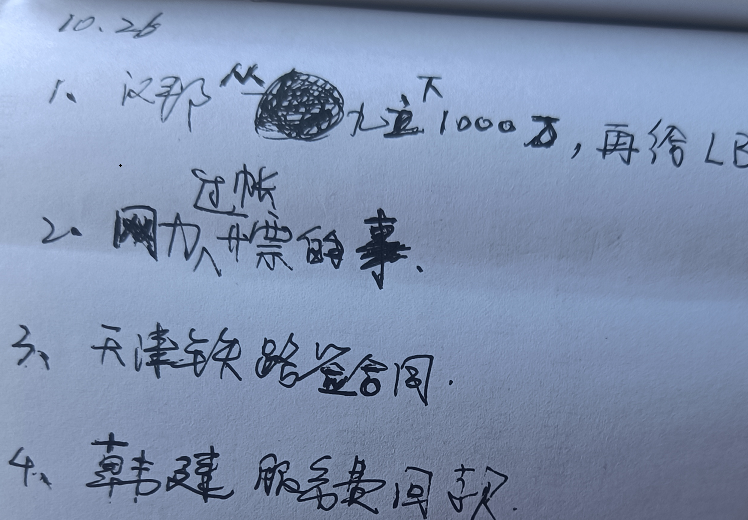 10.26
1、汉邦从九立下1000万,再给LB
2、网力过帐开票的事、
3、天津铁路签合同.
4、韩建服务费回款.